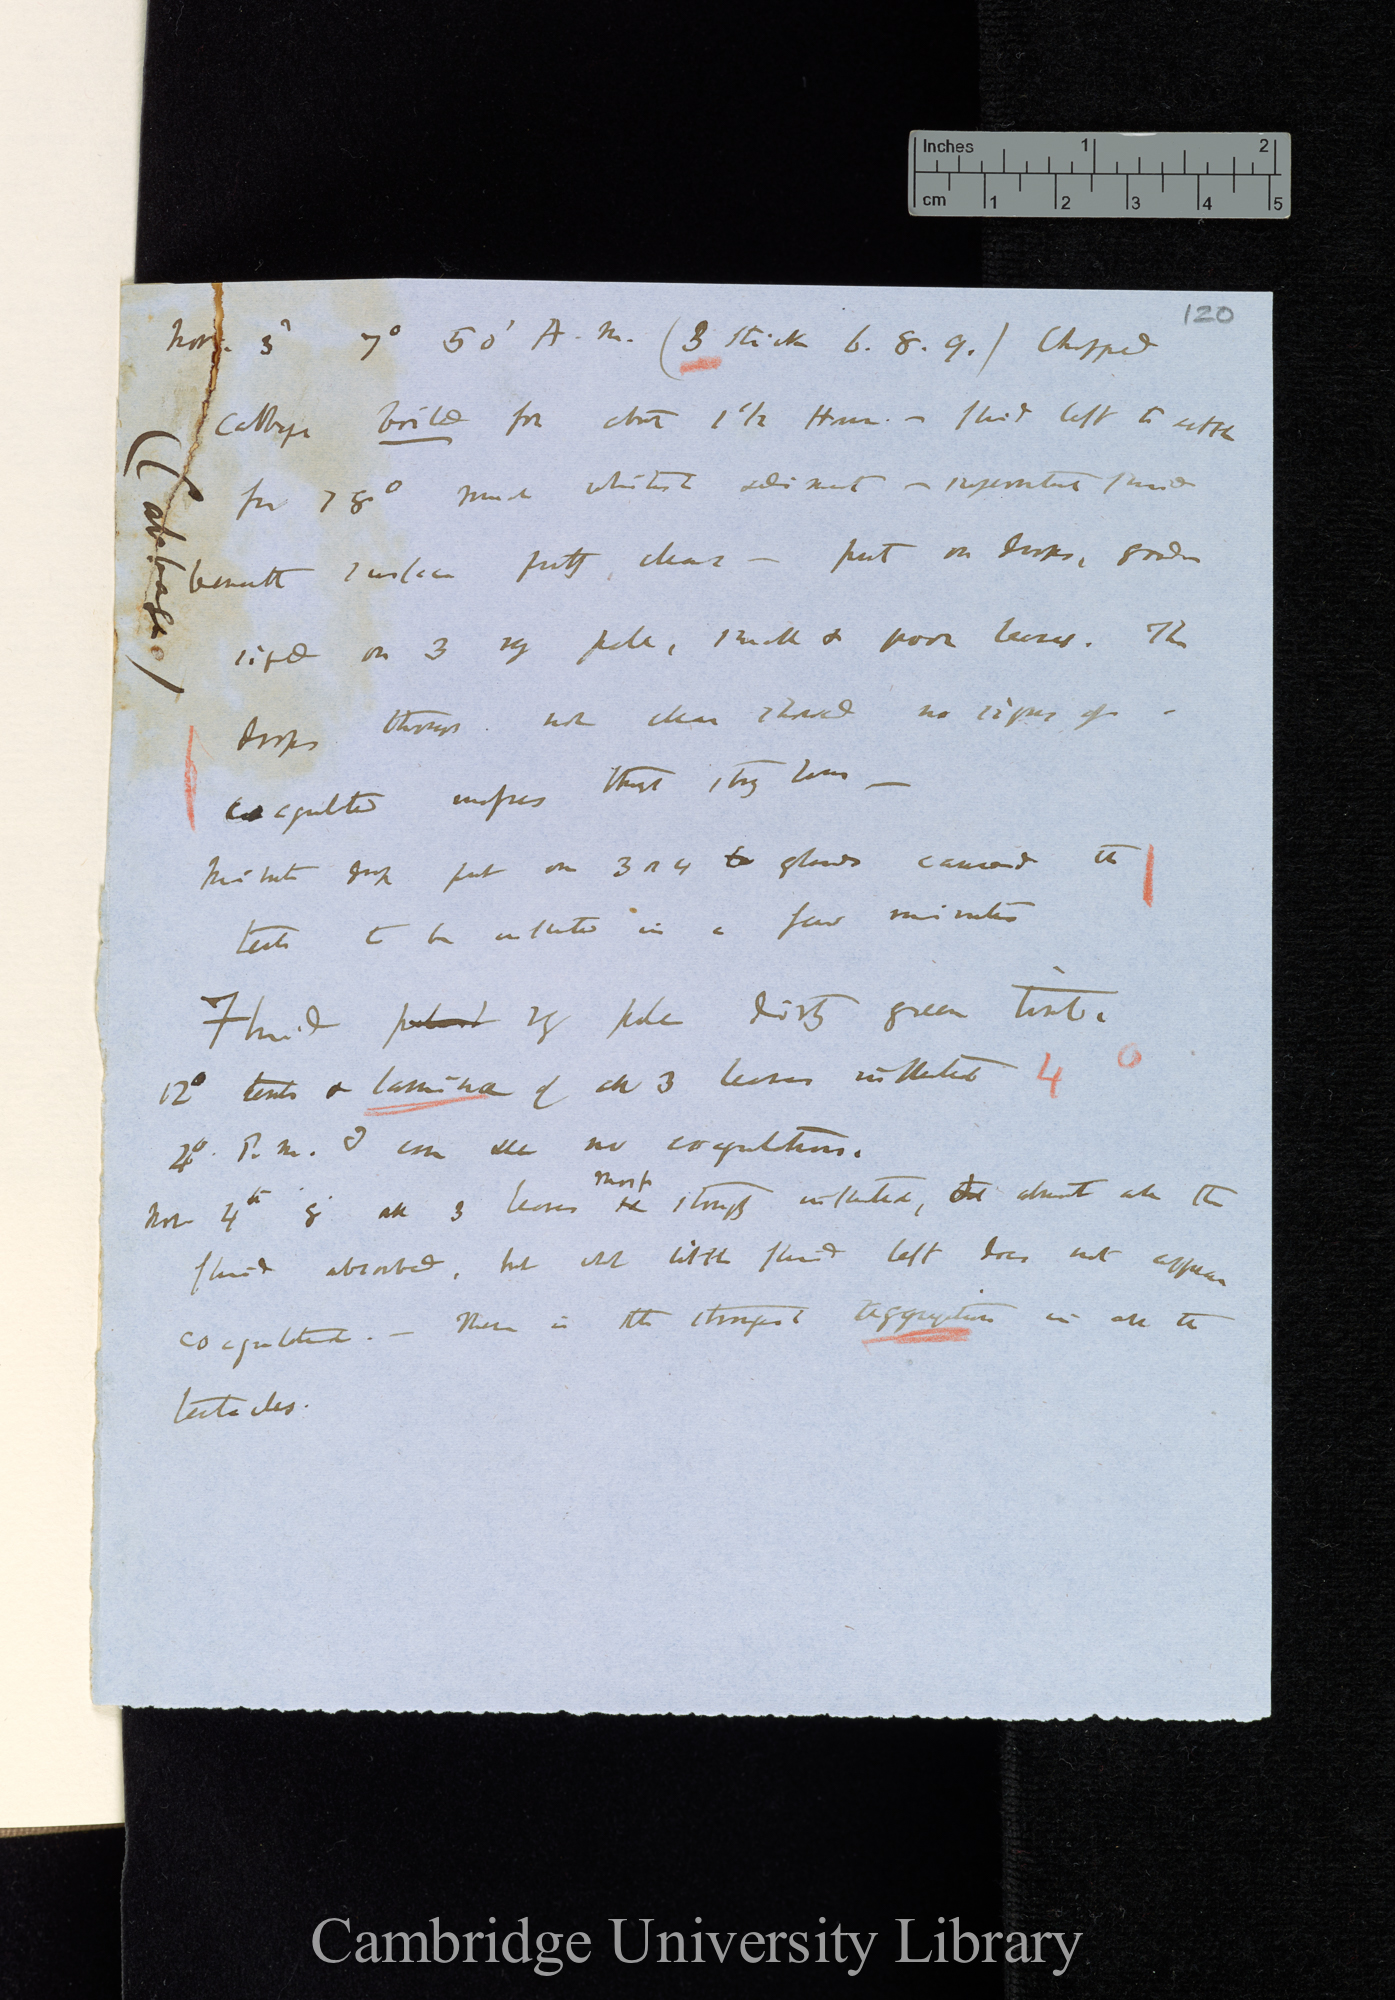 Inches 1 2
cm 1 2 3 4 5
120
Nov. 3d 7° 50' A.M. (3 sticks 6. 8. 9.) Chopped
Cabbage boiled for about 1 1/2 Hour. — fluid left to settle
for much whitish sediment — supernatant fluid
beneath surface pretty clear — put on drops, good
sized on 3 very pale, small & poor leaves. The
drops though not clear showed no signs of
coagulated unless that strong
Minute drop put on 3 or 4 glands caused the
tents to be inflected in a few minutes
Fluid very pale dirty green tint.
12° tents & lamina of all 3 leaves inflected 4°
4° P.m. I can see no coagulation.
Nov 4th 8° all 3 leaves most strongly inflected, almost all the
fluid absorbed, but what little fluid left does not appear
coagulated. — There is the strongest aggregation in all the
tentacles.
(Cabbage)
Cambridge University Library